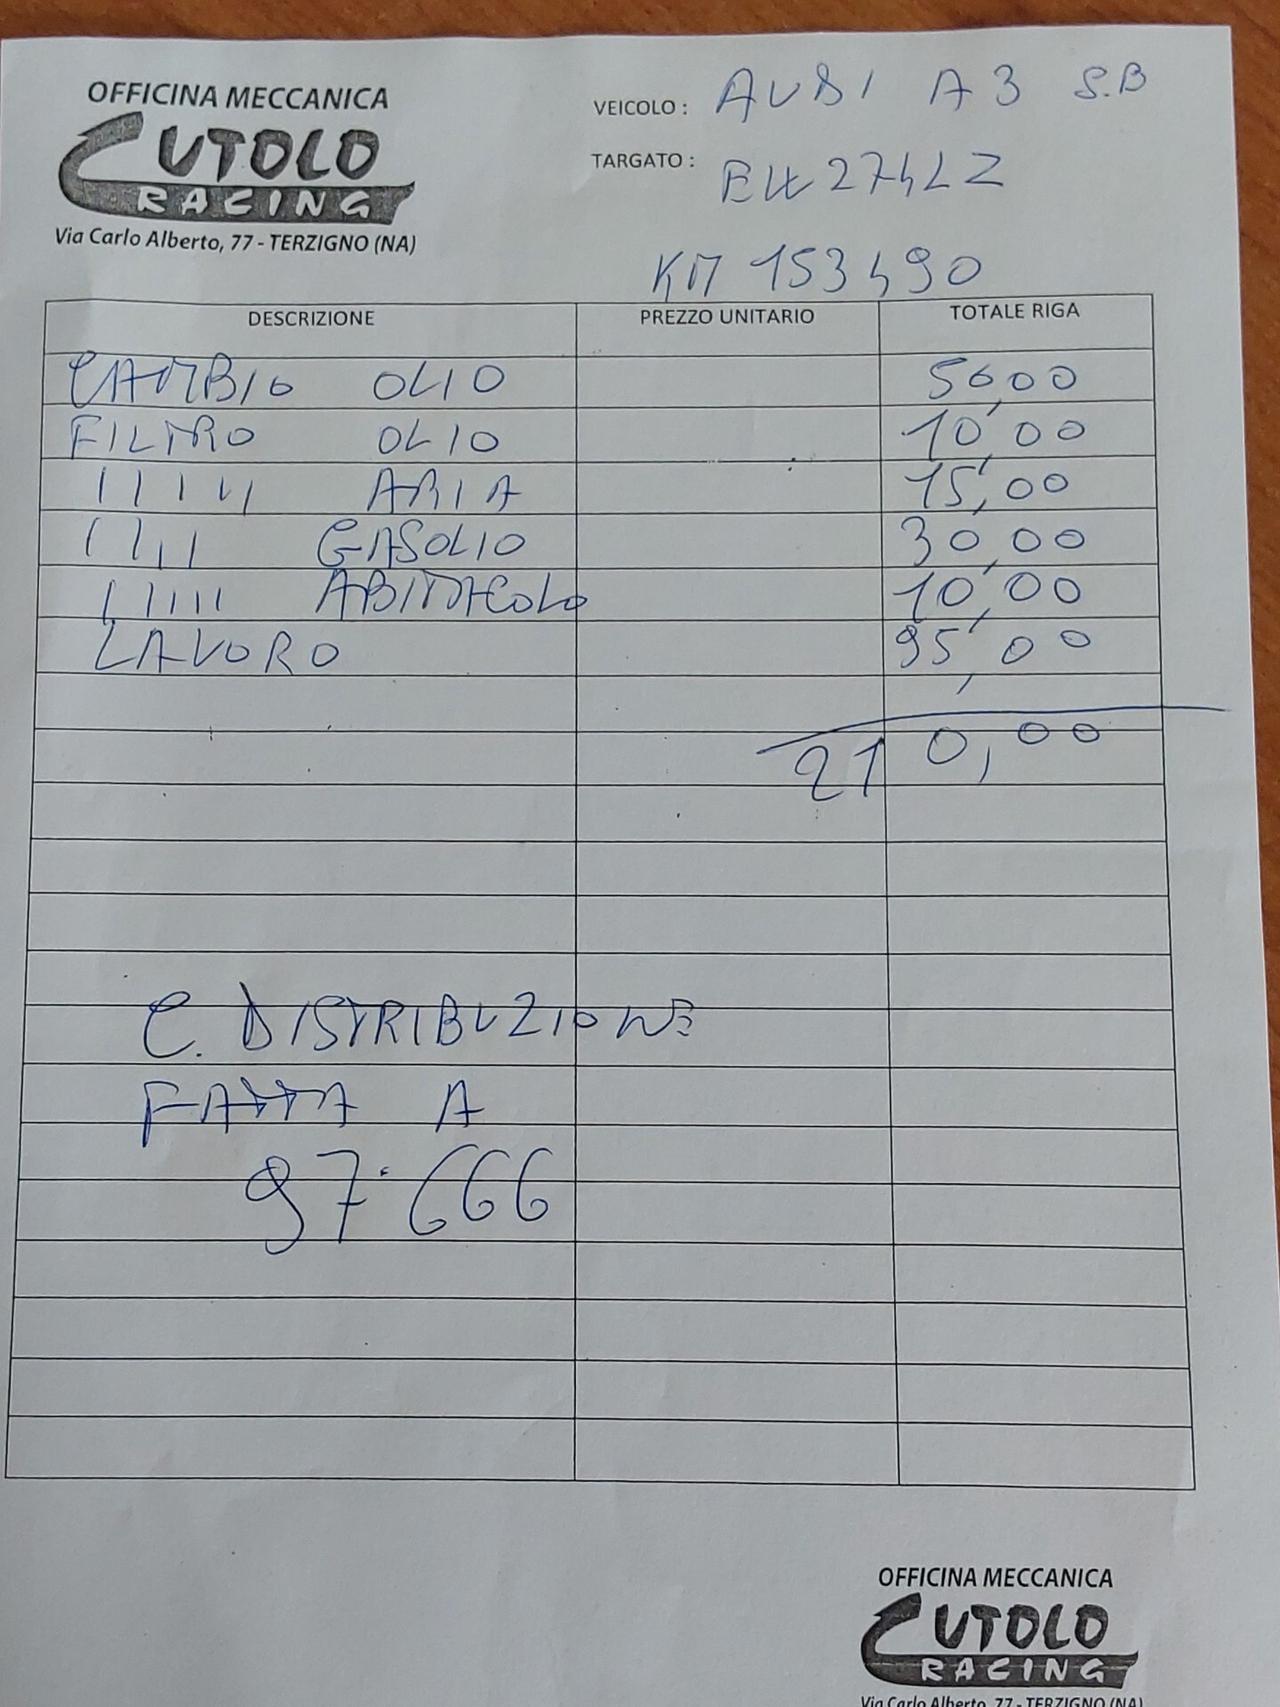 OFFICINA MECCANICA
CUTOLO
RACING
Via Carlo Alberto, 77 - TERZIGNO (NA)
VEICOLO : AUDI A3 S.B
TARGATO :
KM 153490
DESCRIZIONE PREZZO UNITARIO TOTALE RIGA
CAMBIO OLIO 50,00
FILTRO OLIO 10,00
11111 ARIA 15,00
1111 GASOLIO 30,00
11111 ABITACOLO 10,00
LAVORO 95,00
210,00
C. DISTRIBUZIONE
FATTA A
97.666
OFFICINA MECCANICA
CUTOLO
RACING
Via Carlo Alberto, 77 - TERZIGNO (NA)